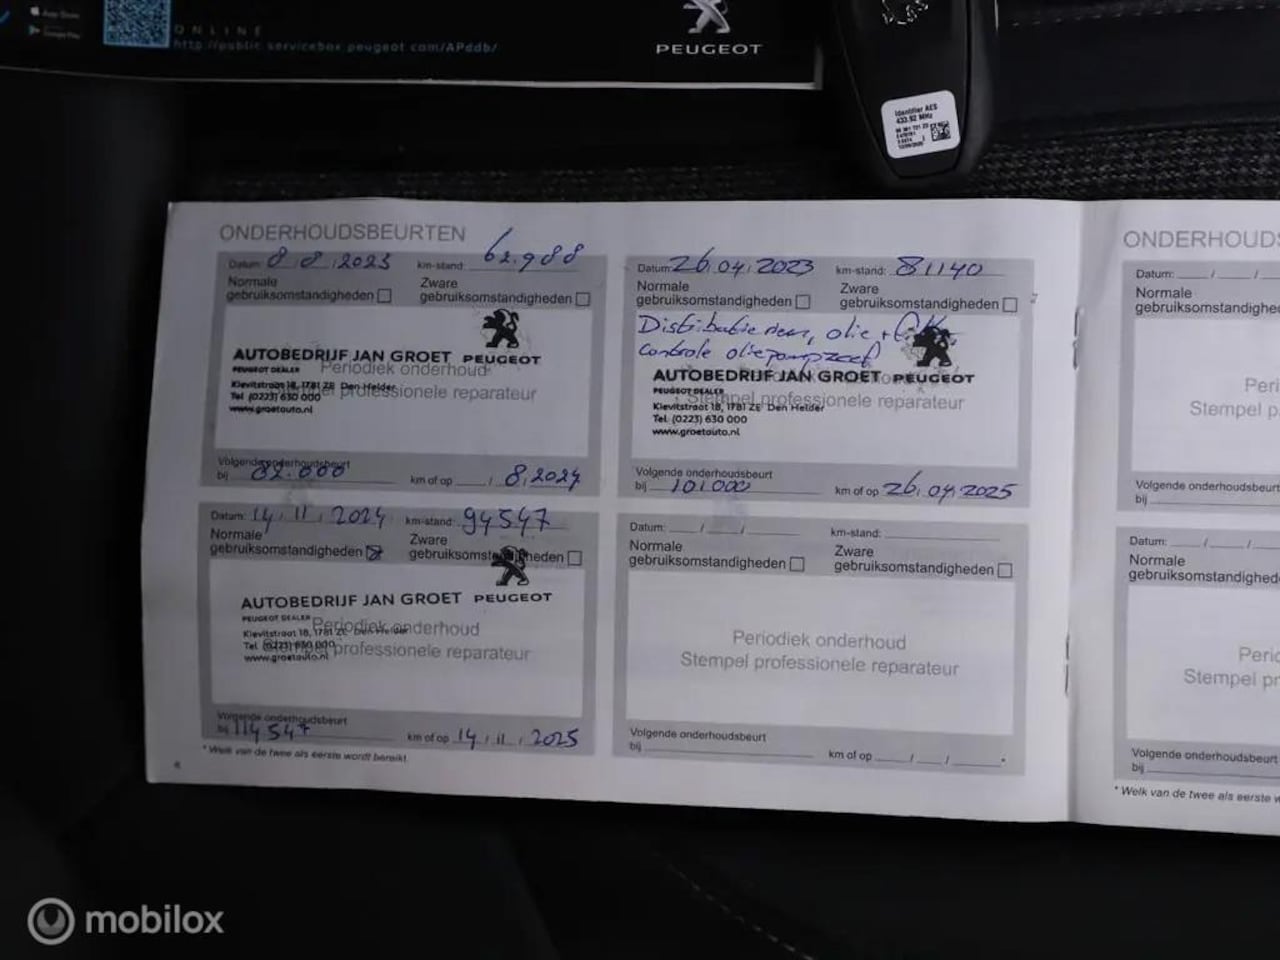 App Store
Google Play
ONLINE
http://public.servicebox.peugeot.com/APddb/
PEUGEOT
Identifier AES
433.92 MHz
ONDERHOUDSBEURTEN
Datum: 8.8.2023 km-stand: 62.988
Normale gebruiksomstandigheden
Zware gebruiksomstandigheden
AUTOBEDRIJF JAN GROET PEUGEOT
PEUGEOT DEALER
Periodiek onderhoud
Kievitstraat 18, 1781 ZE Den Helder
Stempel professionele reparateur
Tel. (0223) 630 000
www.groetauto.nl
Volgende onderhoudsbeurt
bij 82.000 km of op / 8.2024
Datum: 26.04.2023 km-stand: 81140
Normale gebruiksomstandigheden
Zware gebruiksomstandigheden
Distributie riem, olie +
Controle oliepompzeef
AUTOBEDRIJF JAN GROET PEUGEOT
PEUGEOT DEALER
Stempel professionele reparateur
Kievitstraat 18, 1781 ZE Den Helder
Tel. (0223) 630 000
www.groetauto.nl
Volgende onderhoudsbeurt
bij 101.000 km of op 26.04.2025
Datum: 14.11.2024 km-stand: 94547
Normale gebruiksomstandigheden
Zware gebruiksomstandigheden
AUTOBEDRIJF JAN GROET PEUGEOT
PEUGEOT DEALER
Periodiek onderhoud
Kievitstraat 18, 1781 ZE Den Helder
Stempel professionele reparateur
Tel. (0223) 630 000
www.groetauto.nl
Volgende onderhoudsbeurt
bij 114.547 km of op 14.11.2025
* Welk van de twee als eerste wordt bereikt.
6
Datum: / / km-stand:
Normale gebruiksomstandigheden
Zware gebruiksomstandigheden
Periodiek onderhoud
Stempel professionele reparateur
Volgende onderhoudsbeurt
bij km of op / / *
ONDERHOUDS
Datum: / /
Normale
gebruiksomstandighe
Peri
Stempel p
Volgende onderhoudsbeurt
bij
Datum: / /
Normale
gebruiksomstandighed
Perio
Stempel pr
Volgende onderhoudsbeurt
bij
* Welk van de twee als eerste w
mobilox